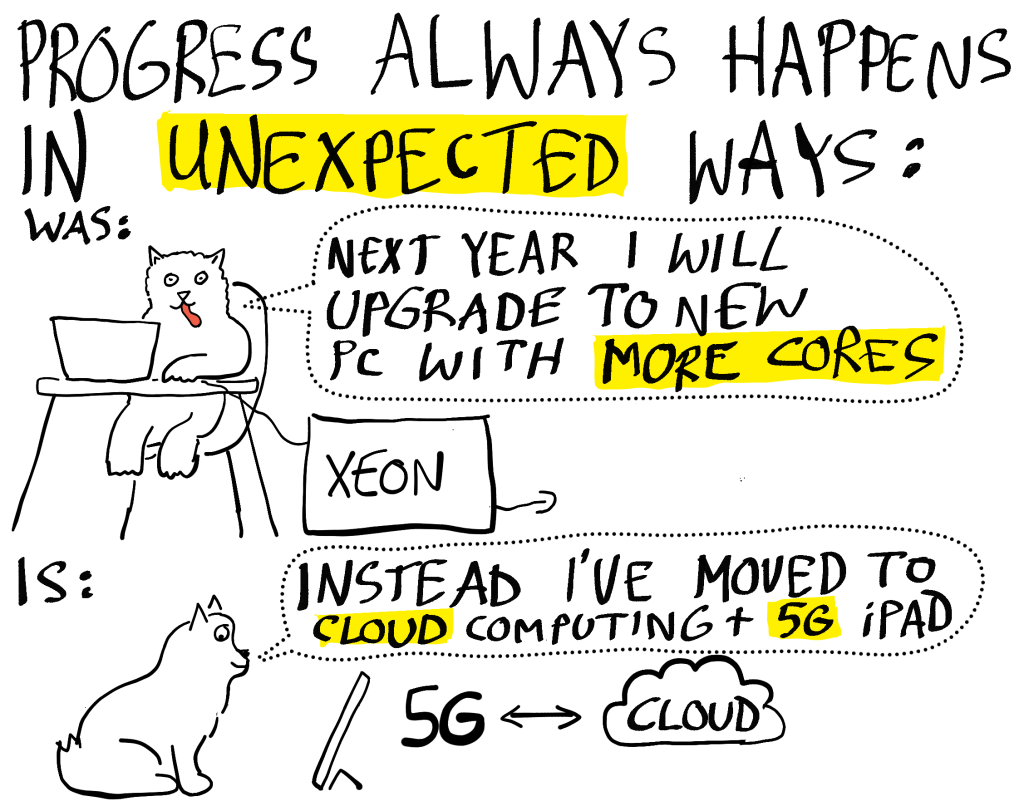 PROGRESS ALWAYS HAPPENS
IN UNEXPECTED WAYS:
WAS:
NEXT YEAR I WILL
UPGRADE TO NEW
PC WITH MORE CORES
XEON
IS:
INSTEAD I'VE MOVED TO
CLOUD COMPUTING + 5G iPAD
5G
CLOUD